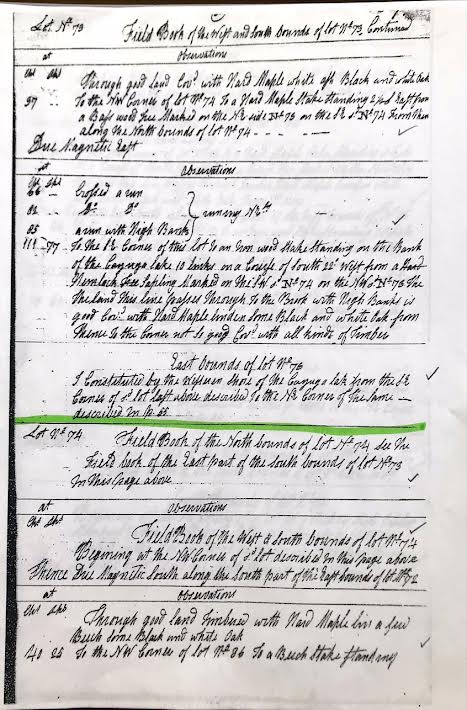 Lot Nº 73 Field Book of the West and South bounds of lot Nº 73 Continued
at Observations
Chs Lks
Through good land Covd with Hard Maple white ash Black and white Oak
37 To the NW Corner of lot Nº 74 To a Hard Maple Stake standing East from
a Bass wood Tree Marked on the NE side Nº 73 on the SE sd Nº 74 From Then
along the North bounds of lot Nº 74
Due Magnetic East
at Observations
Chs Lks
66 Crossed a run
82 Do Do running NEly
85 a run with High Banks
111 77 To the SE Corner of this lot to an Iron wood Stake Standing on the Bank
of the Cayuga lake 10 links on a Course of South 22º West from a Hard
Hemlock Tree Sapling Marked on the SW sd Nº 74 on the NW sd Nº 73 The
The land This line passes Through To the Brook with High Banks is
good Covd with Hard Maple linden Some Black and white Oak from
Thence To the Corner not so good Covd with all kinds of Timber
East bounds of lot Nº 73
I Constituted by the Western Shore of the Cayuga lak from the SE
Corner of sd lot last above described To the NE Corner of the Same
described in p.
Lot Nº 74 Field Book of the North bounds of lot Nº 74 See the
Field book of the East part of the South bounds of lot Nº 73
In this page above
at Observations
Chs Lks
Field Book of the West & South bounds of lot Nº 74
Beginning at the NW Corner of sd lot described in this page above
Thence Due Magnetic South along the South part of the East bounds of lot Nº 72
at Observations
Chs Lks
Through good land Timbered with Hard Maple lin a few
Beech Some Black and white Oak
40 25 To the NW Corner of lot Nº 86 To a Beech Stake Standing